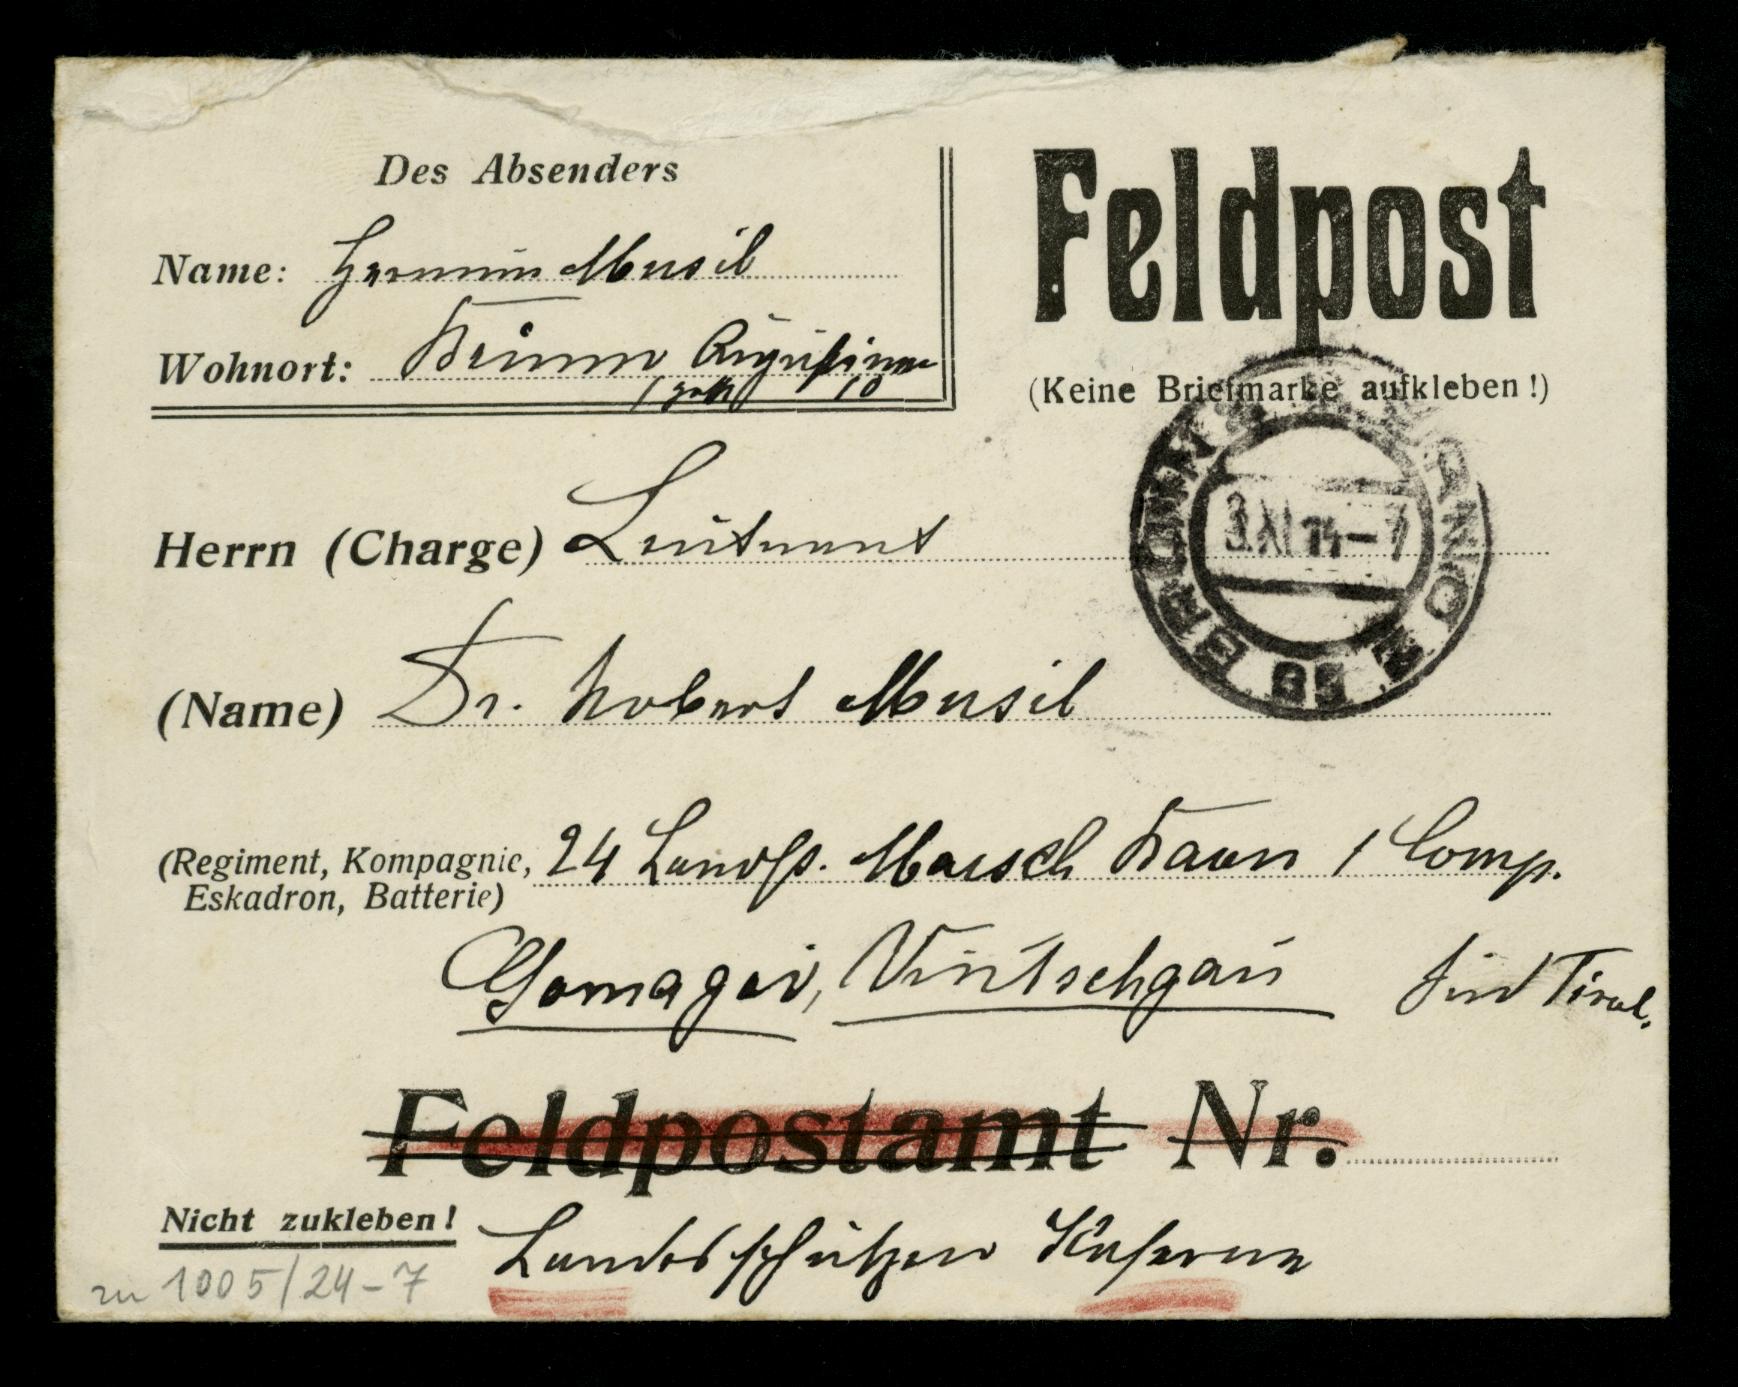 Des Absenders
Name: Hermine Musil
Wohnort: Brünn Augustiner
gasse 10
Feldpost
(Keine Briefmarke aufkleben!)
BRÜNN BRNO 2
3.XI 14-7
Herrn (Charge) Leutnant
(Name) Dr. Robert Musil
(Regiment, Kompagnie, 24 Landst. Marsch Baon 1 Comp.
Eskadron, Batterie)
Gomagoi, Vintschgau Süd Tirol.
Feldpostamt Nr.
Nicht zukleben!
Landesschützen Kaserne
zu 1005/24-7